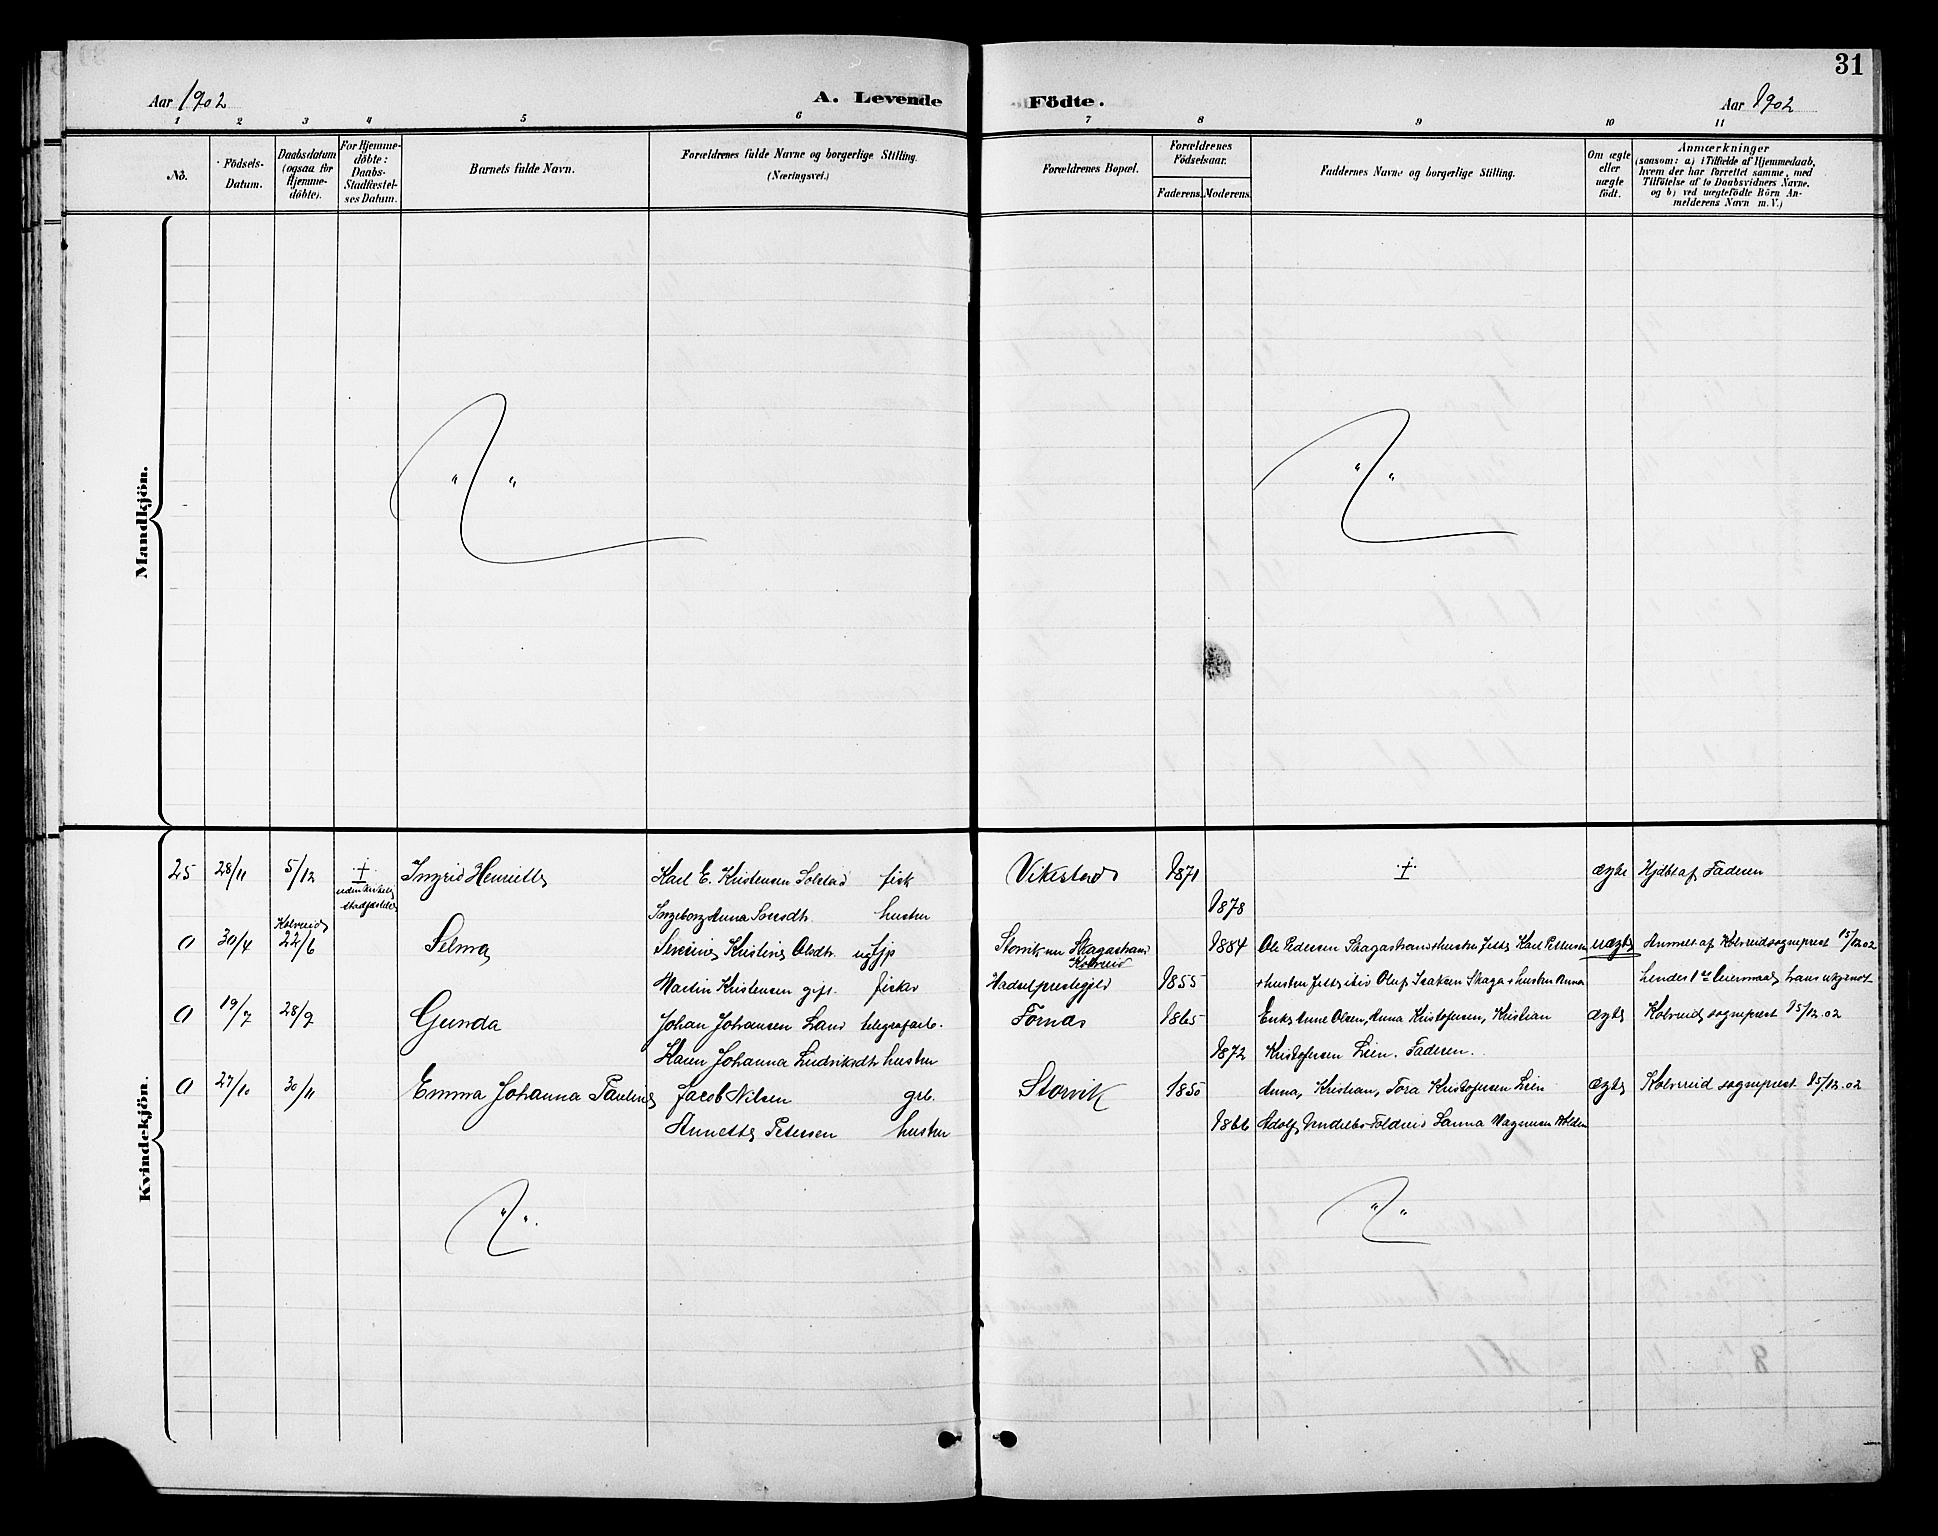 31
Aar 1902
A. Levende Födte.
Aar 1902
1 2 3 4 5 6 7 8 9 10 11
No.
Födsels-Datum.
Daabsdatum (ogsaa for Hjemme-döbte).
For Hjemme-döbte: Daabs-Stadfæstel-ses Datum.
Barnets fulde Navn.
Forældrenes fulde Navne og borgerlige Stilling.
(Næringsvei.)
Forældrenes Bopæl.
Forældrenes Födselsaar.
Faderens. Moderens.
Faddernes Navne og borgerlige Stilling.
Om ægte eller uægte födt.
Anmærkninger
(saasom: a) i Tilfælde af Hjemmedaab,
hvem der har forrettet samme, med
Tilföielse af to Daabsvidners Navne,
og b) ved uægtefödte Börn An-
melderens Navn m. V.)
Mandkjön.
Kvindekjön.
25 28/11 5/12 Ingrid Henriette Karl E. Kristensen Solstad fisk Vikestad 1871 ægte Hjdbt af Faderen
Ingeborg Anna hustru 1878
Kolvereid
0 30/4 22/6 Selma Kristine Olsdtr. 1884 Ole Pedersen Skagastrand hustru Karl Pettersen uægte Anmeldt af Kolvereid sogneprest 15/12 02
Kolvereid
Martin Kristensen gift. fisker Hadsel prestegjeld 1855 Olaf Isaksen Skaga + hustru Anna
0 19/7 28/9 Gunda Johan Johansen Land telegrafarb. Fornes 1865 Anne Olsen, Anna Kristofersen, Kristian ægte Kolvereid sogneprest 15/12.02
Karen Johanna hustru 1872 Kristofersen Lien. Faderen.
0 27/10 30/11 Emma Johanna Pauline Jacob Nilsen grb. Storvik 1850 Anna, Kristian, Tora Kristofersen Lien ægte Kolvereid sogneprest 15/12.02
Annette Petersen hustru 1866 Adolf Hanna Magnusen